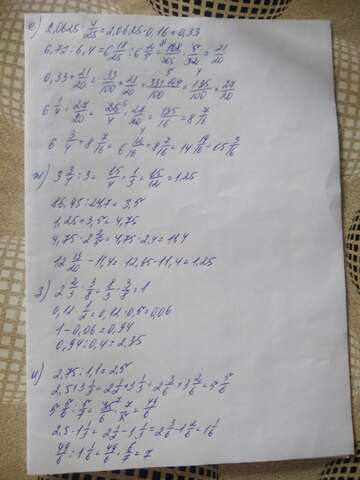 е) 2,0625 · 4/25 = 2,0625 · 0,16 = 0,33
6,72 : 6,4 = 6 18/25 : 6 2/5 = 168/25 · 5/32 = 21/20
0,33 + 21/20 = 33/100 + 21/20 = 33+105/100 =
6 1/4 · = 25/4 · = 135/16 = 8 7/16
6 3/4 + 8 7/16 = 6 12/16 + 8 7/16 = 14 19/16 = 15 3/16
ж) 3 3/4 : 3 = 15/4 · 1/3 = 15/12 = 1,25
86,45 : 24,7 = 3,5
1,25 + 3,5 = 4,75
4,75 · 2 2/5 = 4,75 · 2,4 = 11,4
12 13/20 - 11,4 = 12,65 - 11,4 = 1,25
з) 2 2/3 · 3/8 = · 3/8 = 1
0,12 · 1/2 = 0,12 · 0,5 = 0,06
1 - 0,06 = 0,94
0,94 : 0,4 = 2,35
и) 2,75 : 1,1 = 2,5
2,5 + 3 1/3 = 2 1/2 + 3 1/3 = 2 3/6 + 3 2/6 = 5 5/6
5 5/6 : 5/7 = 35/6 · 7/5 = 49/6
2,5 - 1 1/3 = 2 1/2 - 1 1/3 = 2 3/6 - 1 2/6 = 1 1/6
49/6 : 1 1/6 = 49/6 · 6/7 = 7